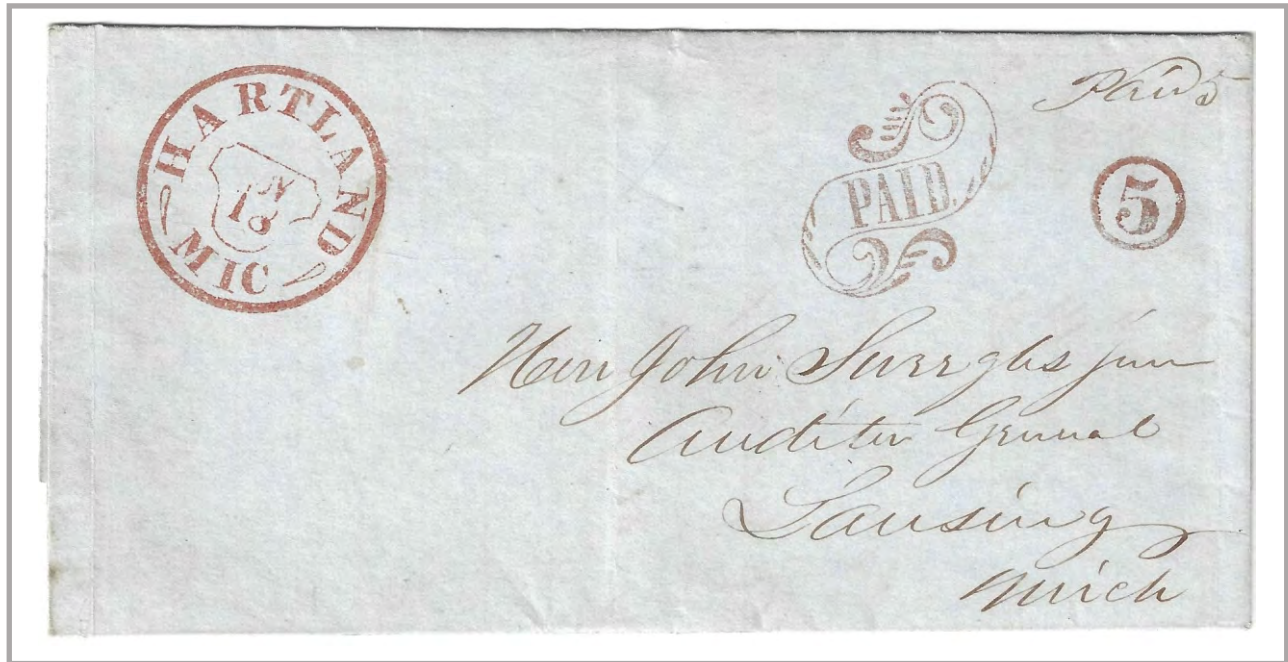 HARTLAND
MIC
PAID.
Paid 5
5
Hon John Swegles jun
Auditor General
Lansing
Mich